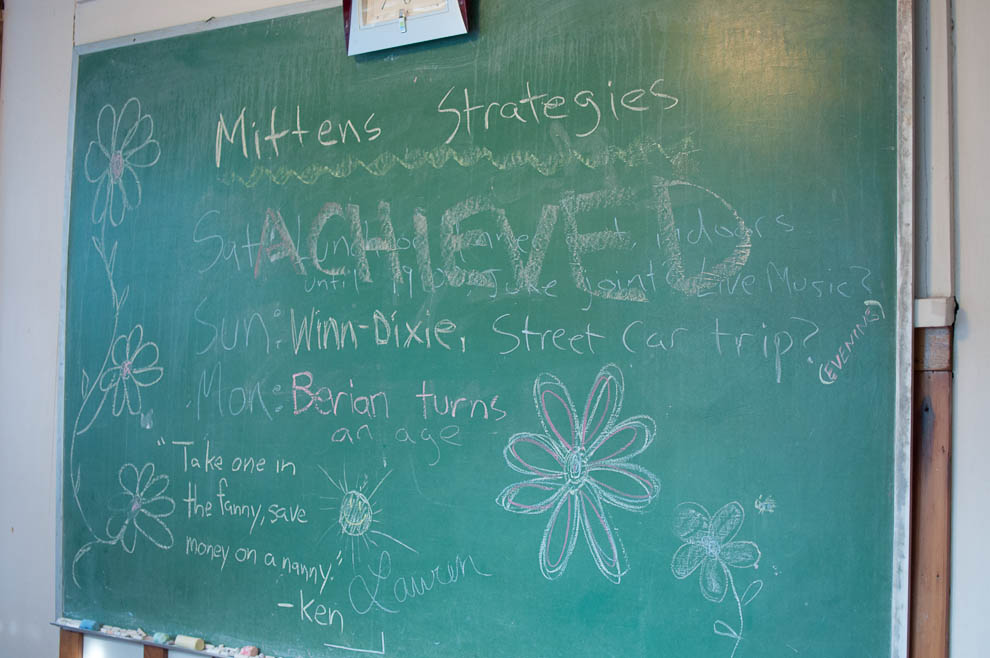 Mittens Strategies
ACHIEVED
Sat: indoors
until 9:00, Juke Joint Live Music?
Sun: Winn-Dixie, Street Car trip?
(EVENING)
Mon: Berian turns
an age
"Take one in
the fanny, save
money on a nanny."
-Ken
Lauren